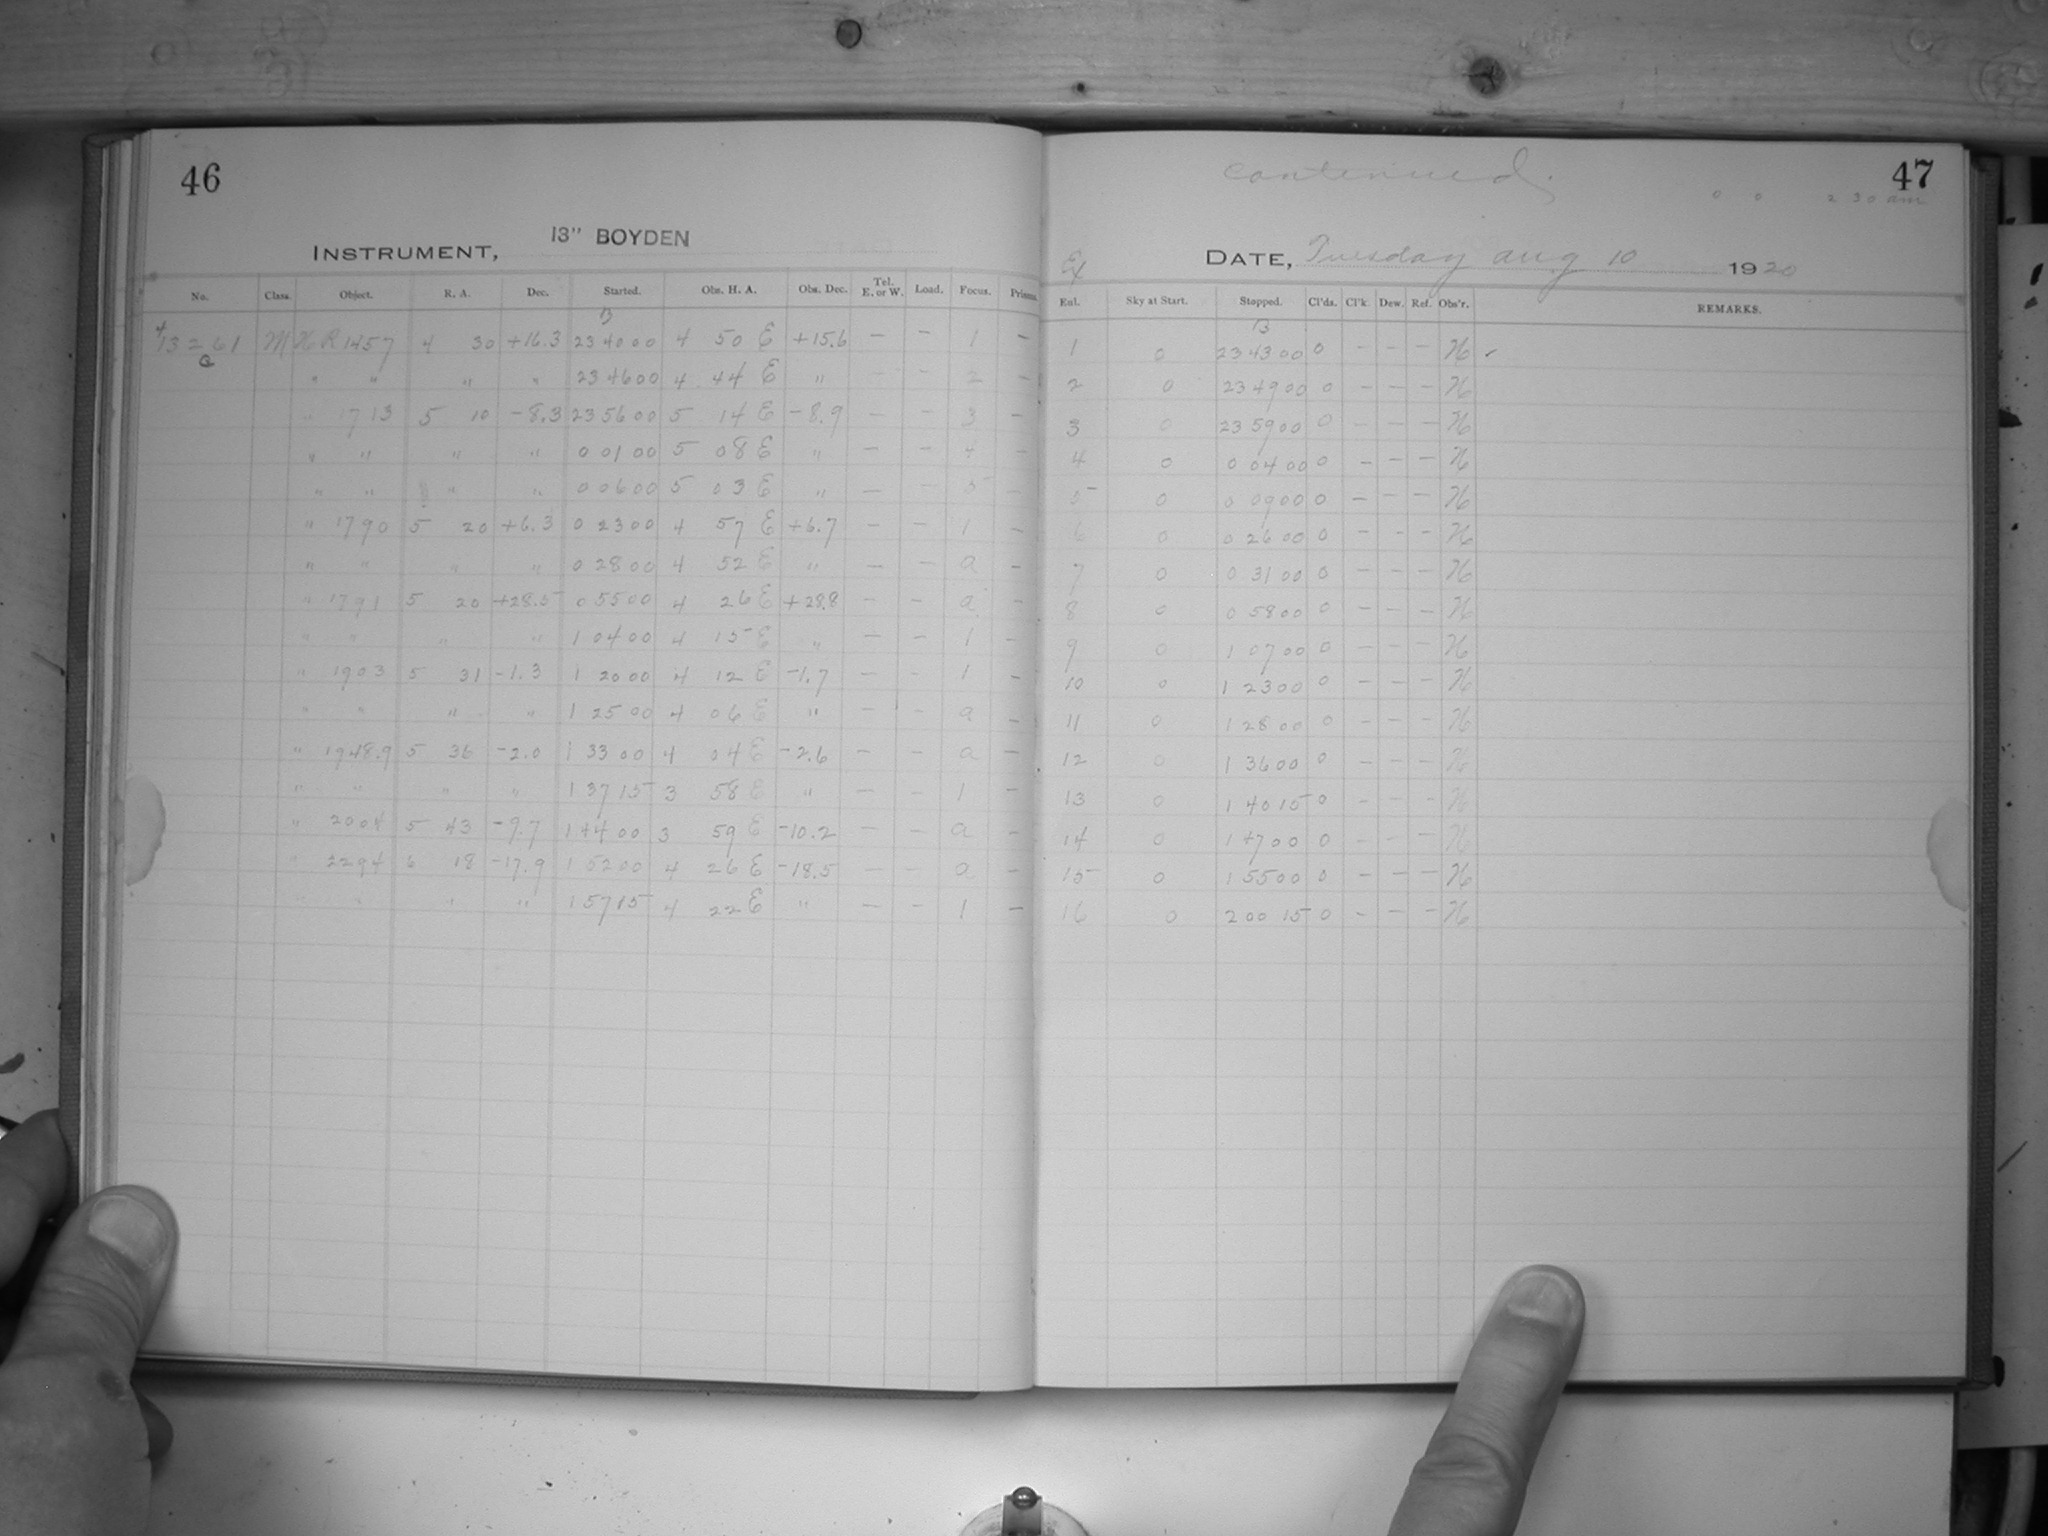 46
13" BOYDEN
INSTRUMENT,
No. Class. Object. R. A. Dec. Started. Obs. H. A. Obs. Dec. Tel. E. or W. Load. Focus. Prisms.
B
13261 M H R 1457 4 30 +16.3 23 40 00 4 50 E +15.6 – – 1 –
a " " " " 23 46 00 4 44 E " – – 2 –
" 1713 5 10 -8.3 23 56 00 5 14 E -8.9 – – 3 –
" " " " 0 01 00 5 08 E " – – 4 –
" " " " 0 06 00 5 03 E " – – 5 –
" 1790 5 20 +6.3 0 23 00 4 57 E +6.7 – – 1 –
" " " " 0 28 00 4 52 E " – – a –
" 1791 5 20 +28.5 0 55 00 4 26 E +28.8 – – a –
" " " " 1 04 00 4 15 E " – – 1 –
" 1903 5 31 -1.3 1 20 00 4 12 E -1.7 – – 1 –
" " " " 1 25 00 4 06 E " – – a –
" 1948.9 5 36 -2.0 1 33 00 4 04 E -2.6 – – a –
" " " " 1 37 15 3 58 E " – – 1 –
" 2004 5 43 -9.7 1 44 00 3 59 E -10.2 – – a –
" 2294 6 18 -17.9 1 52 00 4 26 E -18.5 – – a –
" " " " 1 57 15 4 22 E " – – 1 –
continued.
47
0 0 2 30 am
Ex DATE, Tuesday Aug 10 1920
Eul. Sky at Start. Stopped. Cl'ds. Cl'k. Dew. Ref. Obs'r. REMARKS.
B
1 0 23 43 00 0 – – – H ✓
2 0 23 49 00 0 – – – H
3 0 23 59 00 0 – – – H
4 0 0 04 00 0 – – – H
5 0 0 09 00 0 – – – H
6 0 0 26 00 0 – – – H
7 0 0 31 00 0 – – – H
8 0 0 58 00 0 – – – H
9 0 1 07 00 0 – – – H
10 0 1 23 00 0 – – – H
11 0 1 28 00 0 – – – H
12 0 1 36 00 0 – – – H
13 0 1 40 15 0 – – – H
14 0 1 47 00 0 – – – H
15 0 1 55 00 0 – – – H
16 0 2 00 15 0 – – – H